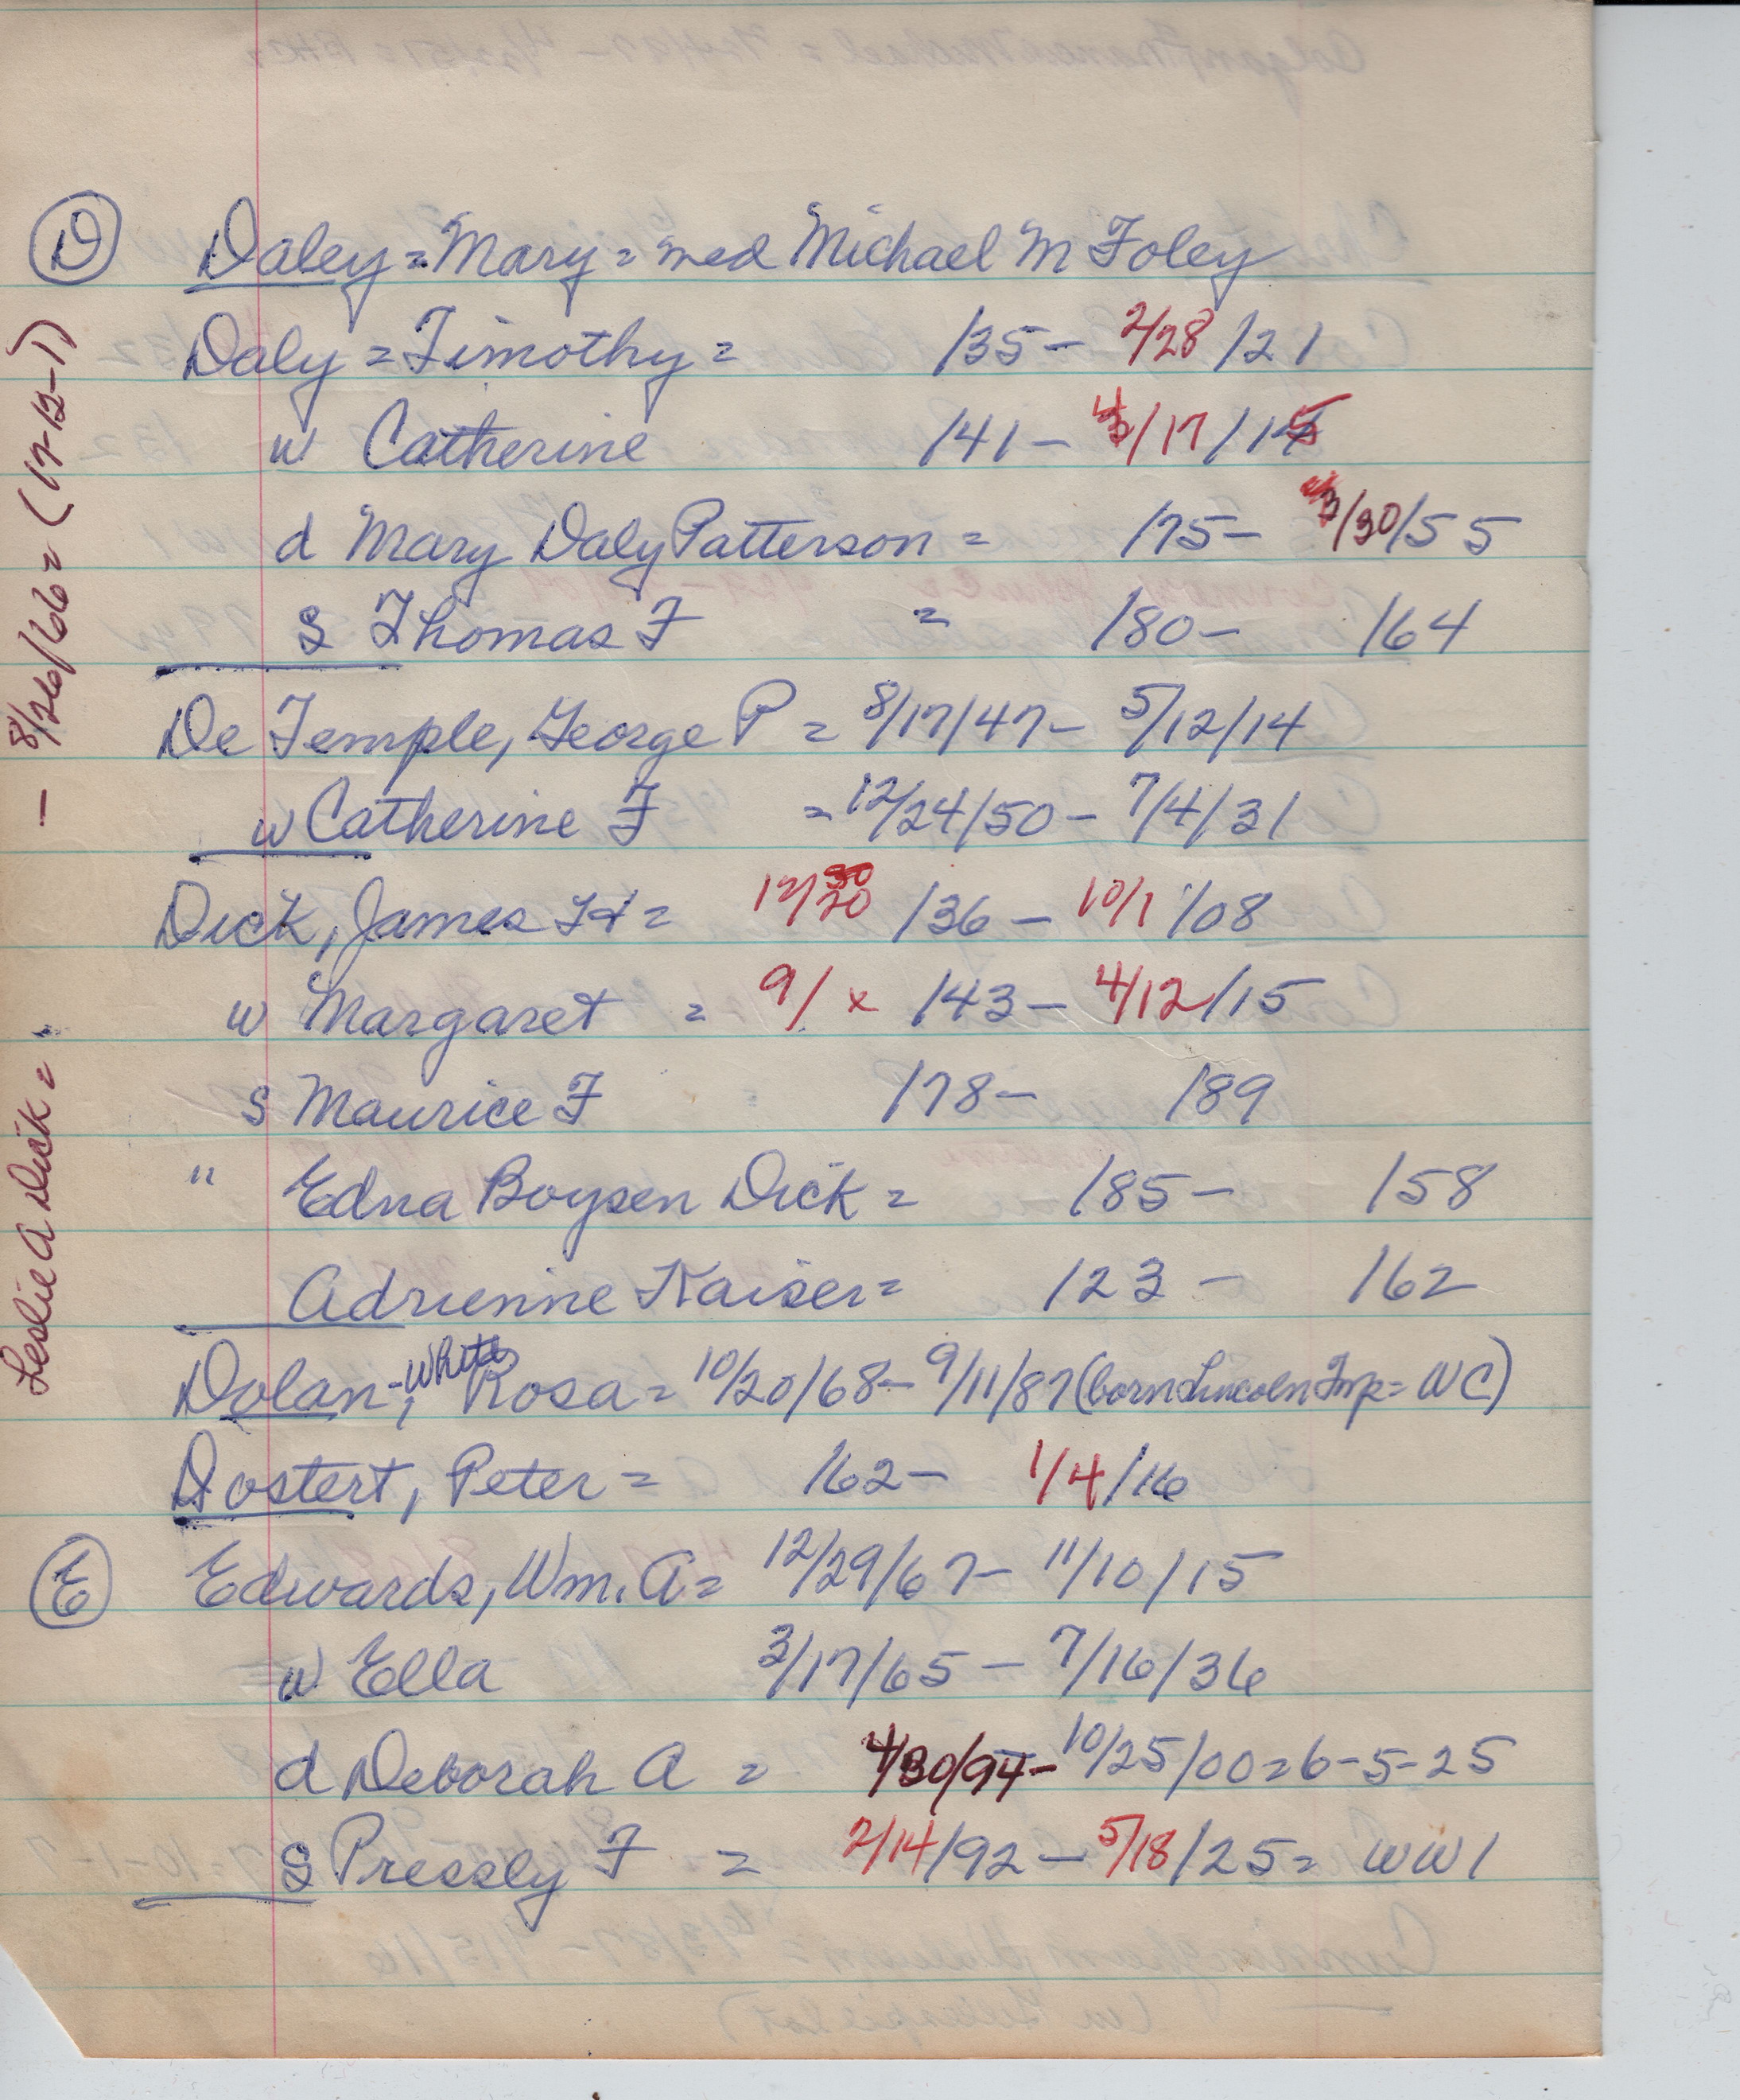 D Daley = Mary = med Michael M Foley
Daly = Timothy = /35 - 2/28/21
w Catherine /41 - 4/17/15
d Mary Daly Patterson = /75 - 3/30/55
s Thomas F = /80 - /64
De Temple, George P = 8/17/47 - 5/12/14
w Catherine F = 12/24/50 - 7/4/31
Dick, James H = 12/30/36 - 10/1/08
w Margaret = 9/x/43 - 4/12/15
s Maurice F /78 - /89
" Edna Boysen Dick = /85 - /58
Adrienne Kaiser = /23 - /62
Dolan - White, Rosa = 10/20/68 - 9/11/87 (born Lincoln Tmp = WC)
Dostert, Peter = /62 - 1/4/16
E Edwards, Wm. A = 12/29/67 - 11/10/15
w Ella 3/17/65 - 7/16/36
d Deborah A = 4/30/94 - 10/25/00 = 6-5-25
s Pressly F = 2/14/92 - 5/18/25 = WW1
Leslie A Dick = . - 8/26/66 = (17-12-1)